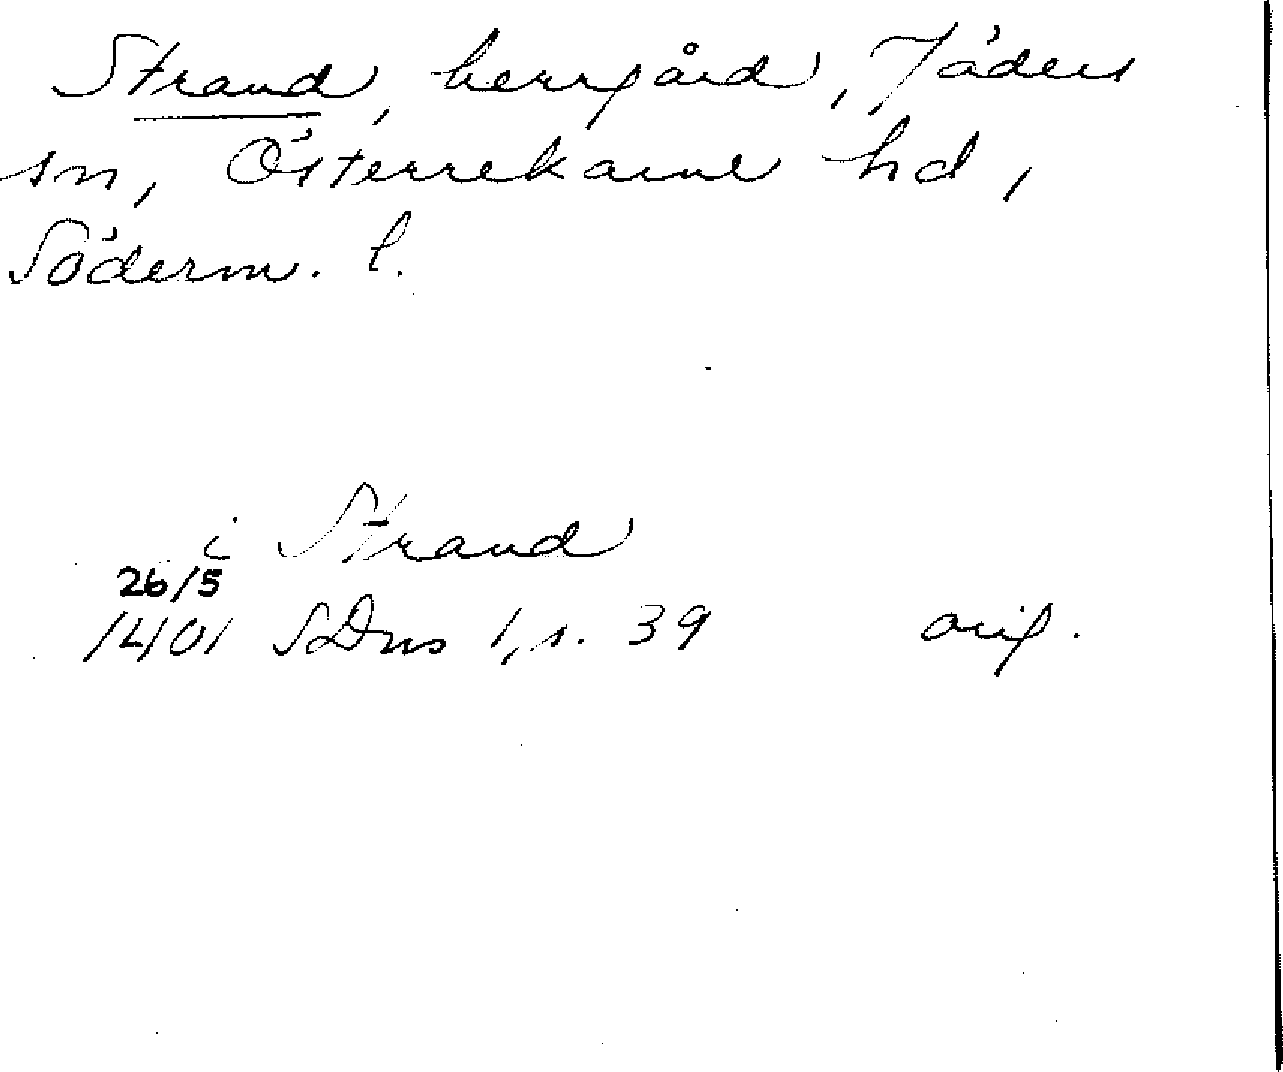 Strand, herrgård, Jäders
sn, Österrekarne hd,
Söderm. l.
i Strand
26/5
1401 SDns 1, s. 39 orig.